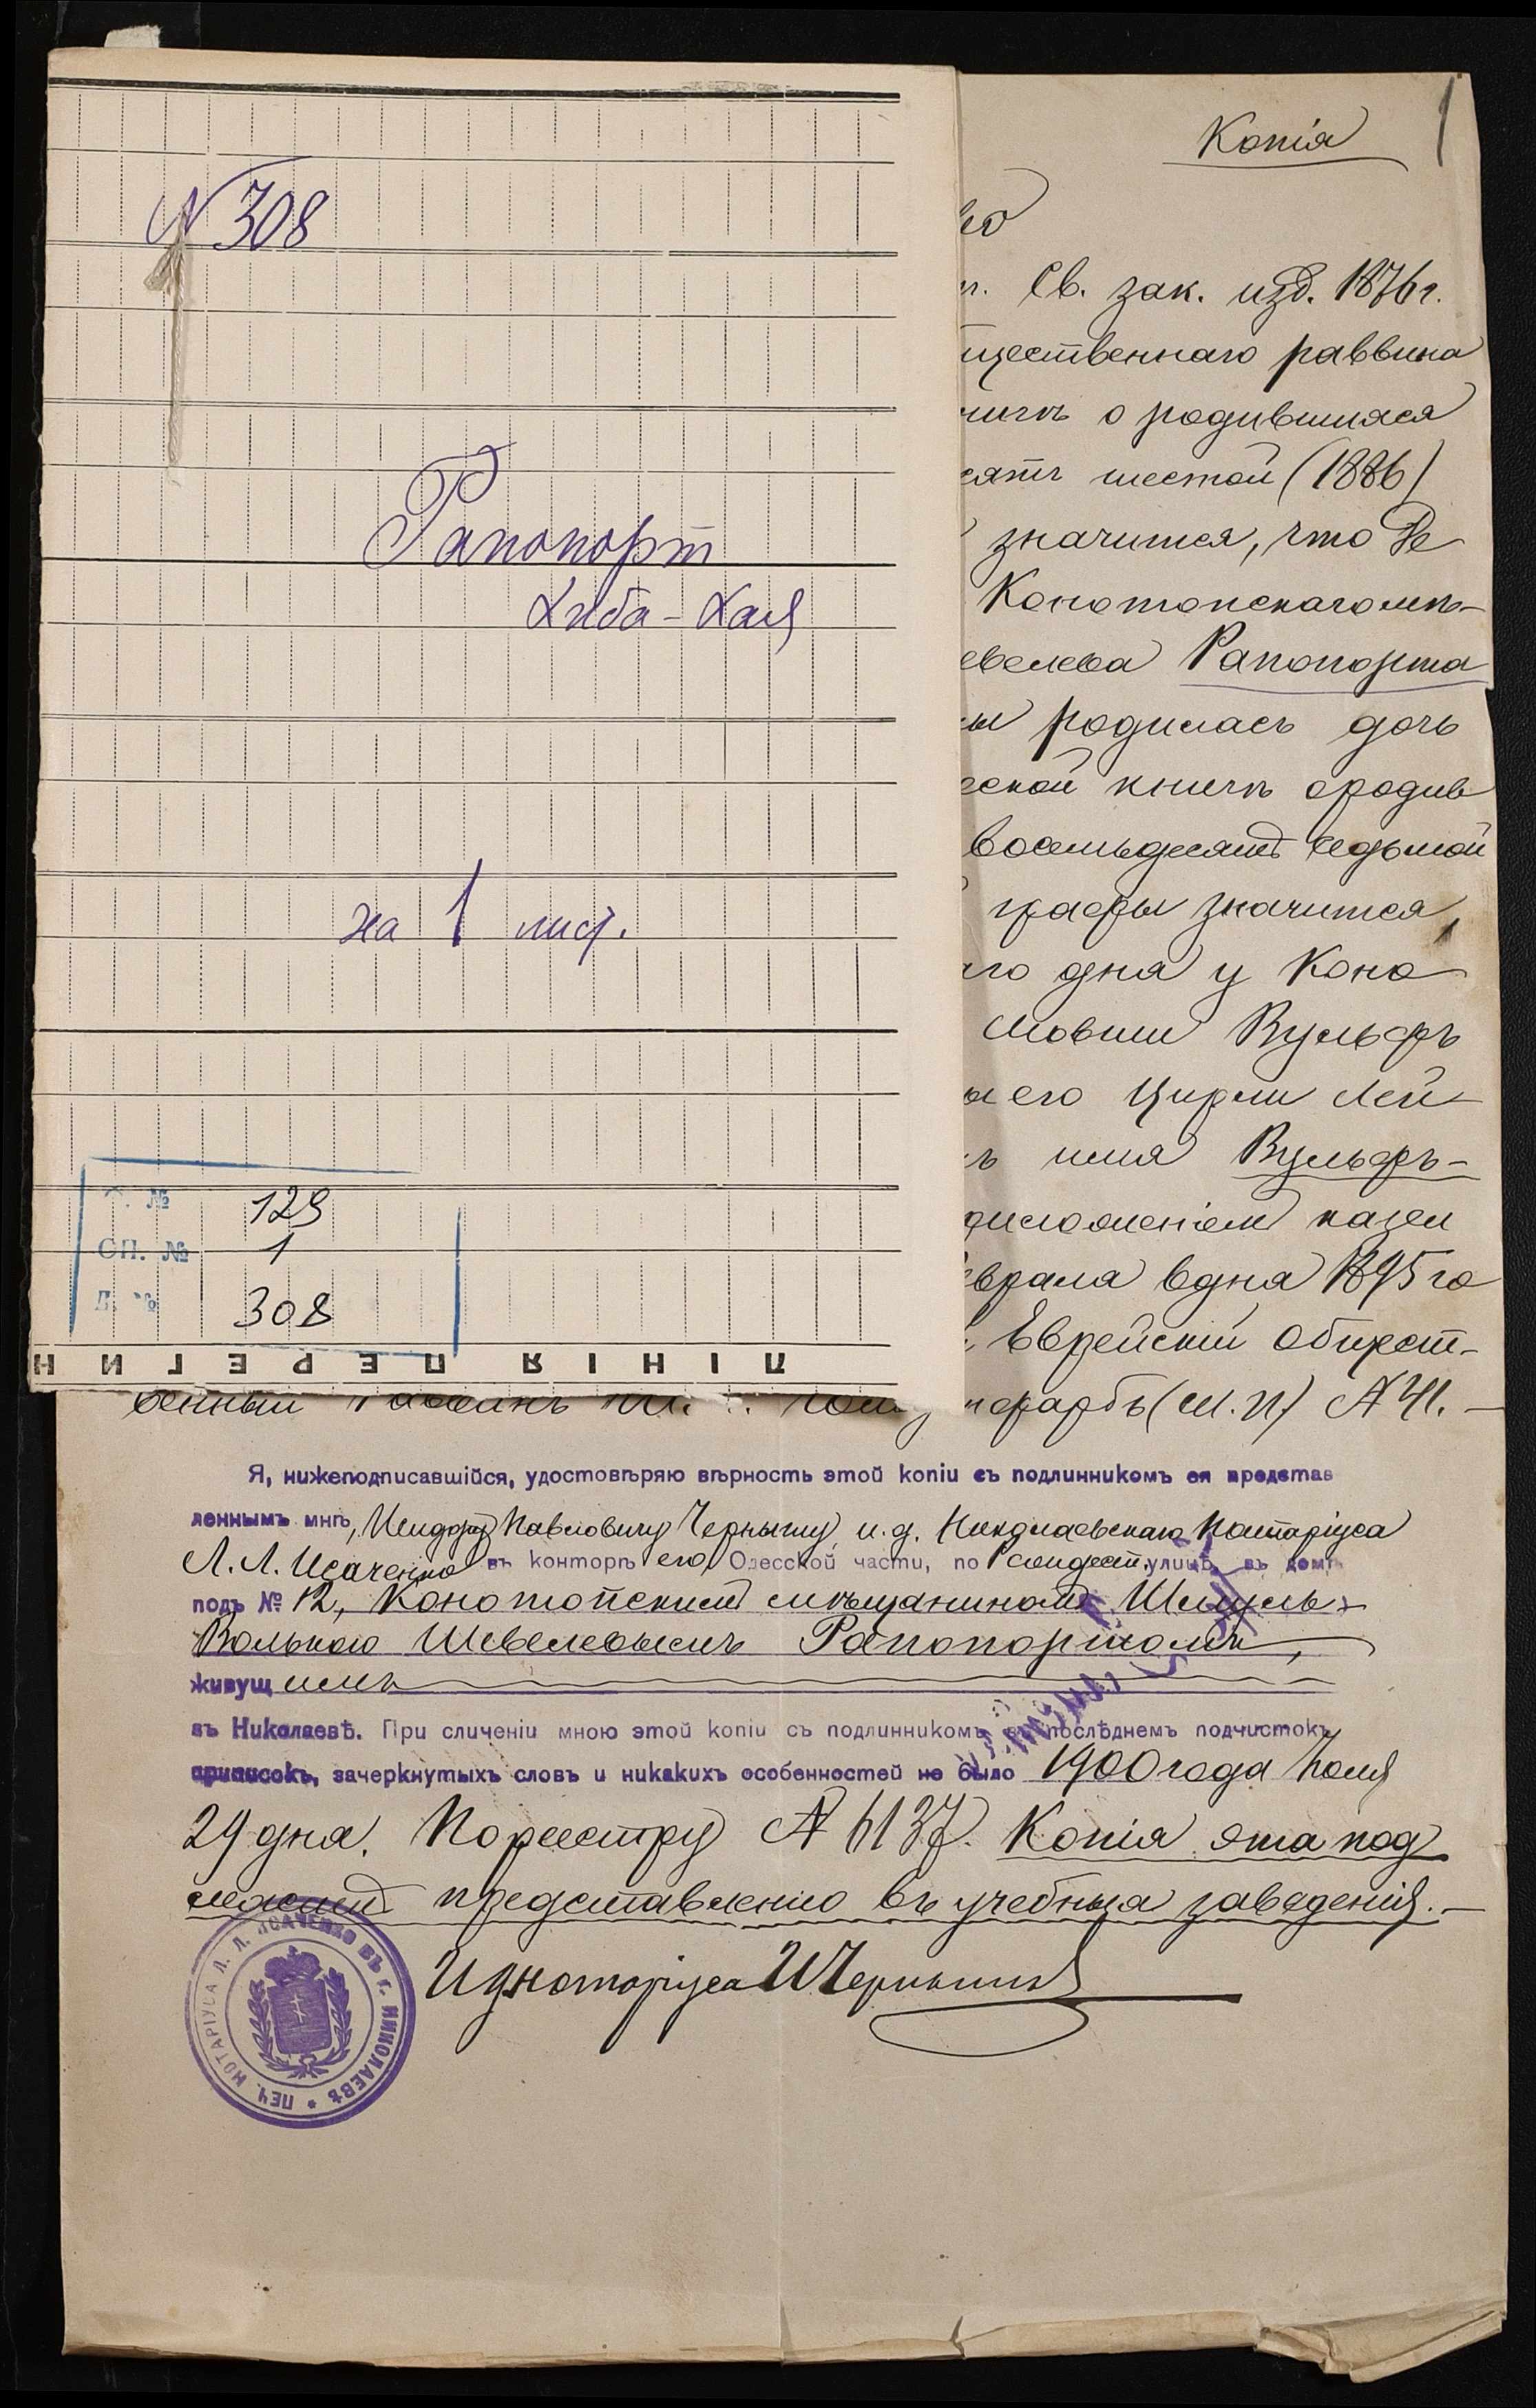 N 308
Рапопорт
Хиба-Хая
на 1 лист.
№ 129
ОП. № 1
Д. № 308
ЛІНІЯ ПЕРЕГИН
Копія
1
Св. зак. изд. 1876 г.
щественнаго раввина
о родившихся
сятъ шестой (1886)
значится, что
Конотопскаго мѣ-
евелева Рапопорта
родилась дочь
ской книгѣ о родив
восемьдесятъ седьмой
графы значится,
го дня у Коно
Мовши Вульфъ
его Цирли Лей
имя Вульфъ-
приложеніемъ казен
евраля дня 1895 го
Еврейскій Общест-
венный Раввинъ (М.П.) № 41.
Я, нижеподписавшійся, удостовѣряю вѣрность этой копіи съ подлинникомъ ея представ
леннымъ мнѣ, Исидору Павловичу Чернышу, и.д. Николаевскаго Нотаріуса
Л. Л. Исаченко въ конторѣ его, Одесской части, по улицѣ, въ домѣ
подъ № 12, Конотопскимъ мѣщаниномъ Шмуль-
Волькою Шевелевымъ Рапопортомъ,
живущимъ
въ Николаевѣ. При сличеніи мною этой копіи съ подлинникомъ въ послѣднемъ подчистокъ,
приписокъ, зачеркнутыхъ словъ и никакихъ особенностей не было 1900 года Іюля
29 дня. По реестру № 6137. Копія эта под
лежитъ представленію въ учебныя заведенія.
И д нотаріуса И Чернышъ
ПЕЧ. НОТАРІУСА Л. Л. ИСАЧЕНКО ВЪ Г. НИКОЛАЕВѢ